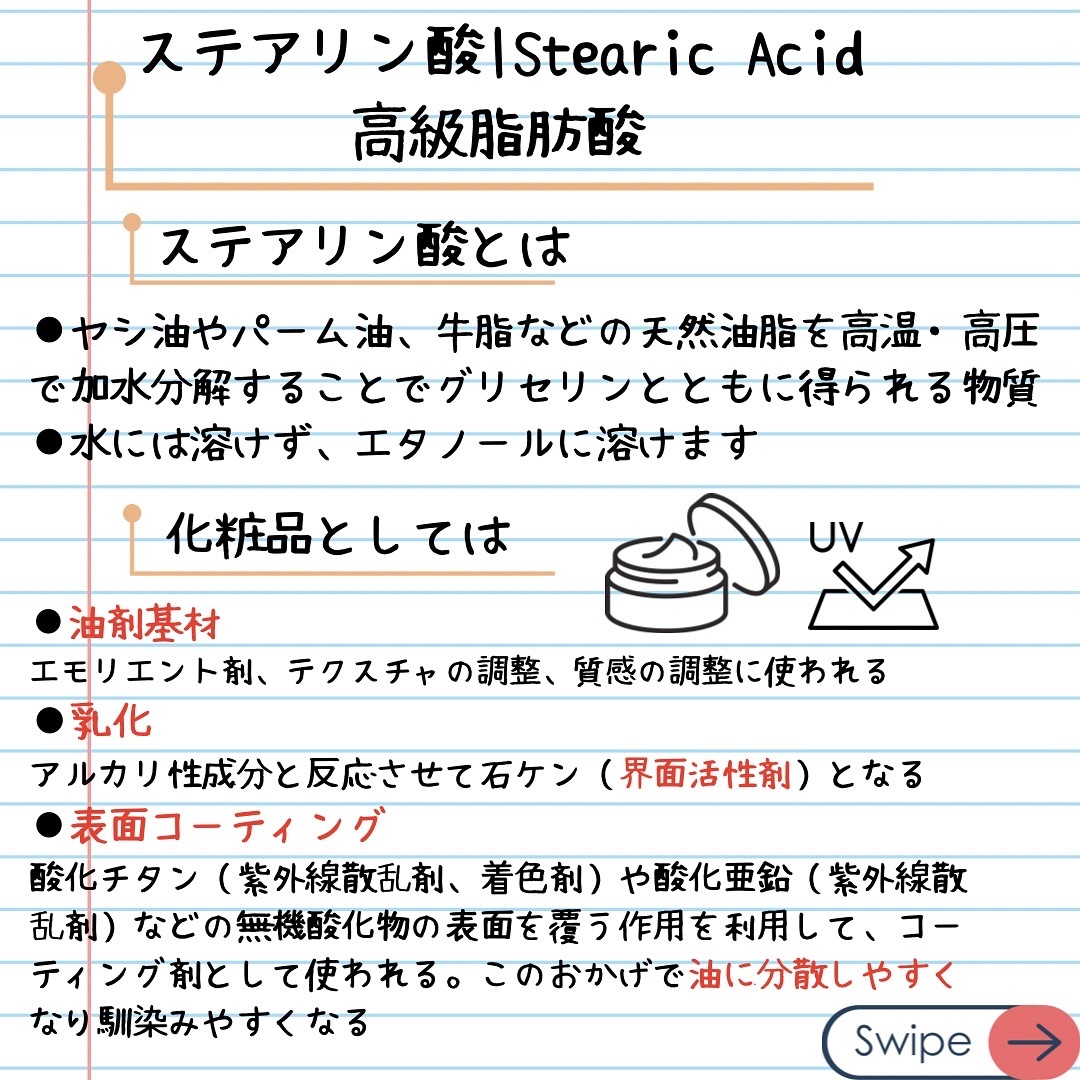 ステアリン酸|Stearic Acid
高級脂肪酸
ステアリン酸とは
●ヤシ油やパーム油、牛脂などの天然油脂を高温・高圧
で加水分解することでグリセリンとともに得られる物質
●水には溶けず、エタノールに溶けます
化粧品としては
UV
●油剤基材
エモリエント剤、テクスチャの調整、質感の調整に使われる
●乳化
アルカリ性成分と反応させて石ケン（界面活性剤）となる
●表面コーティング
酸化チタン（紫外線散乱剤、着色剤）や酸化亜鉛（紫外線散
乱剤）などの無機酸化物の表面を覆う作用を利用して、コー
ティング剤として使われる。このおかげで油に分散しやすく
なり馴染みやすくなる
Swipe